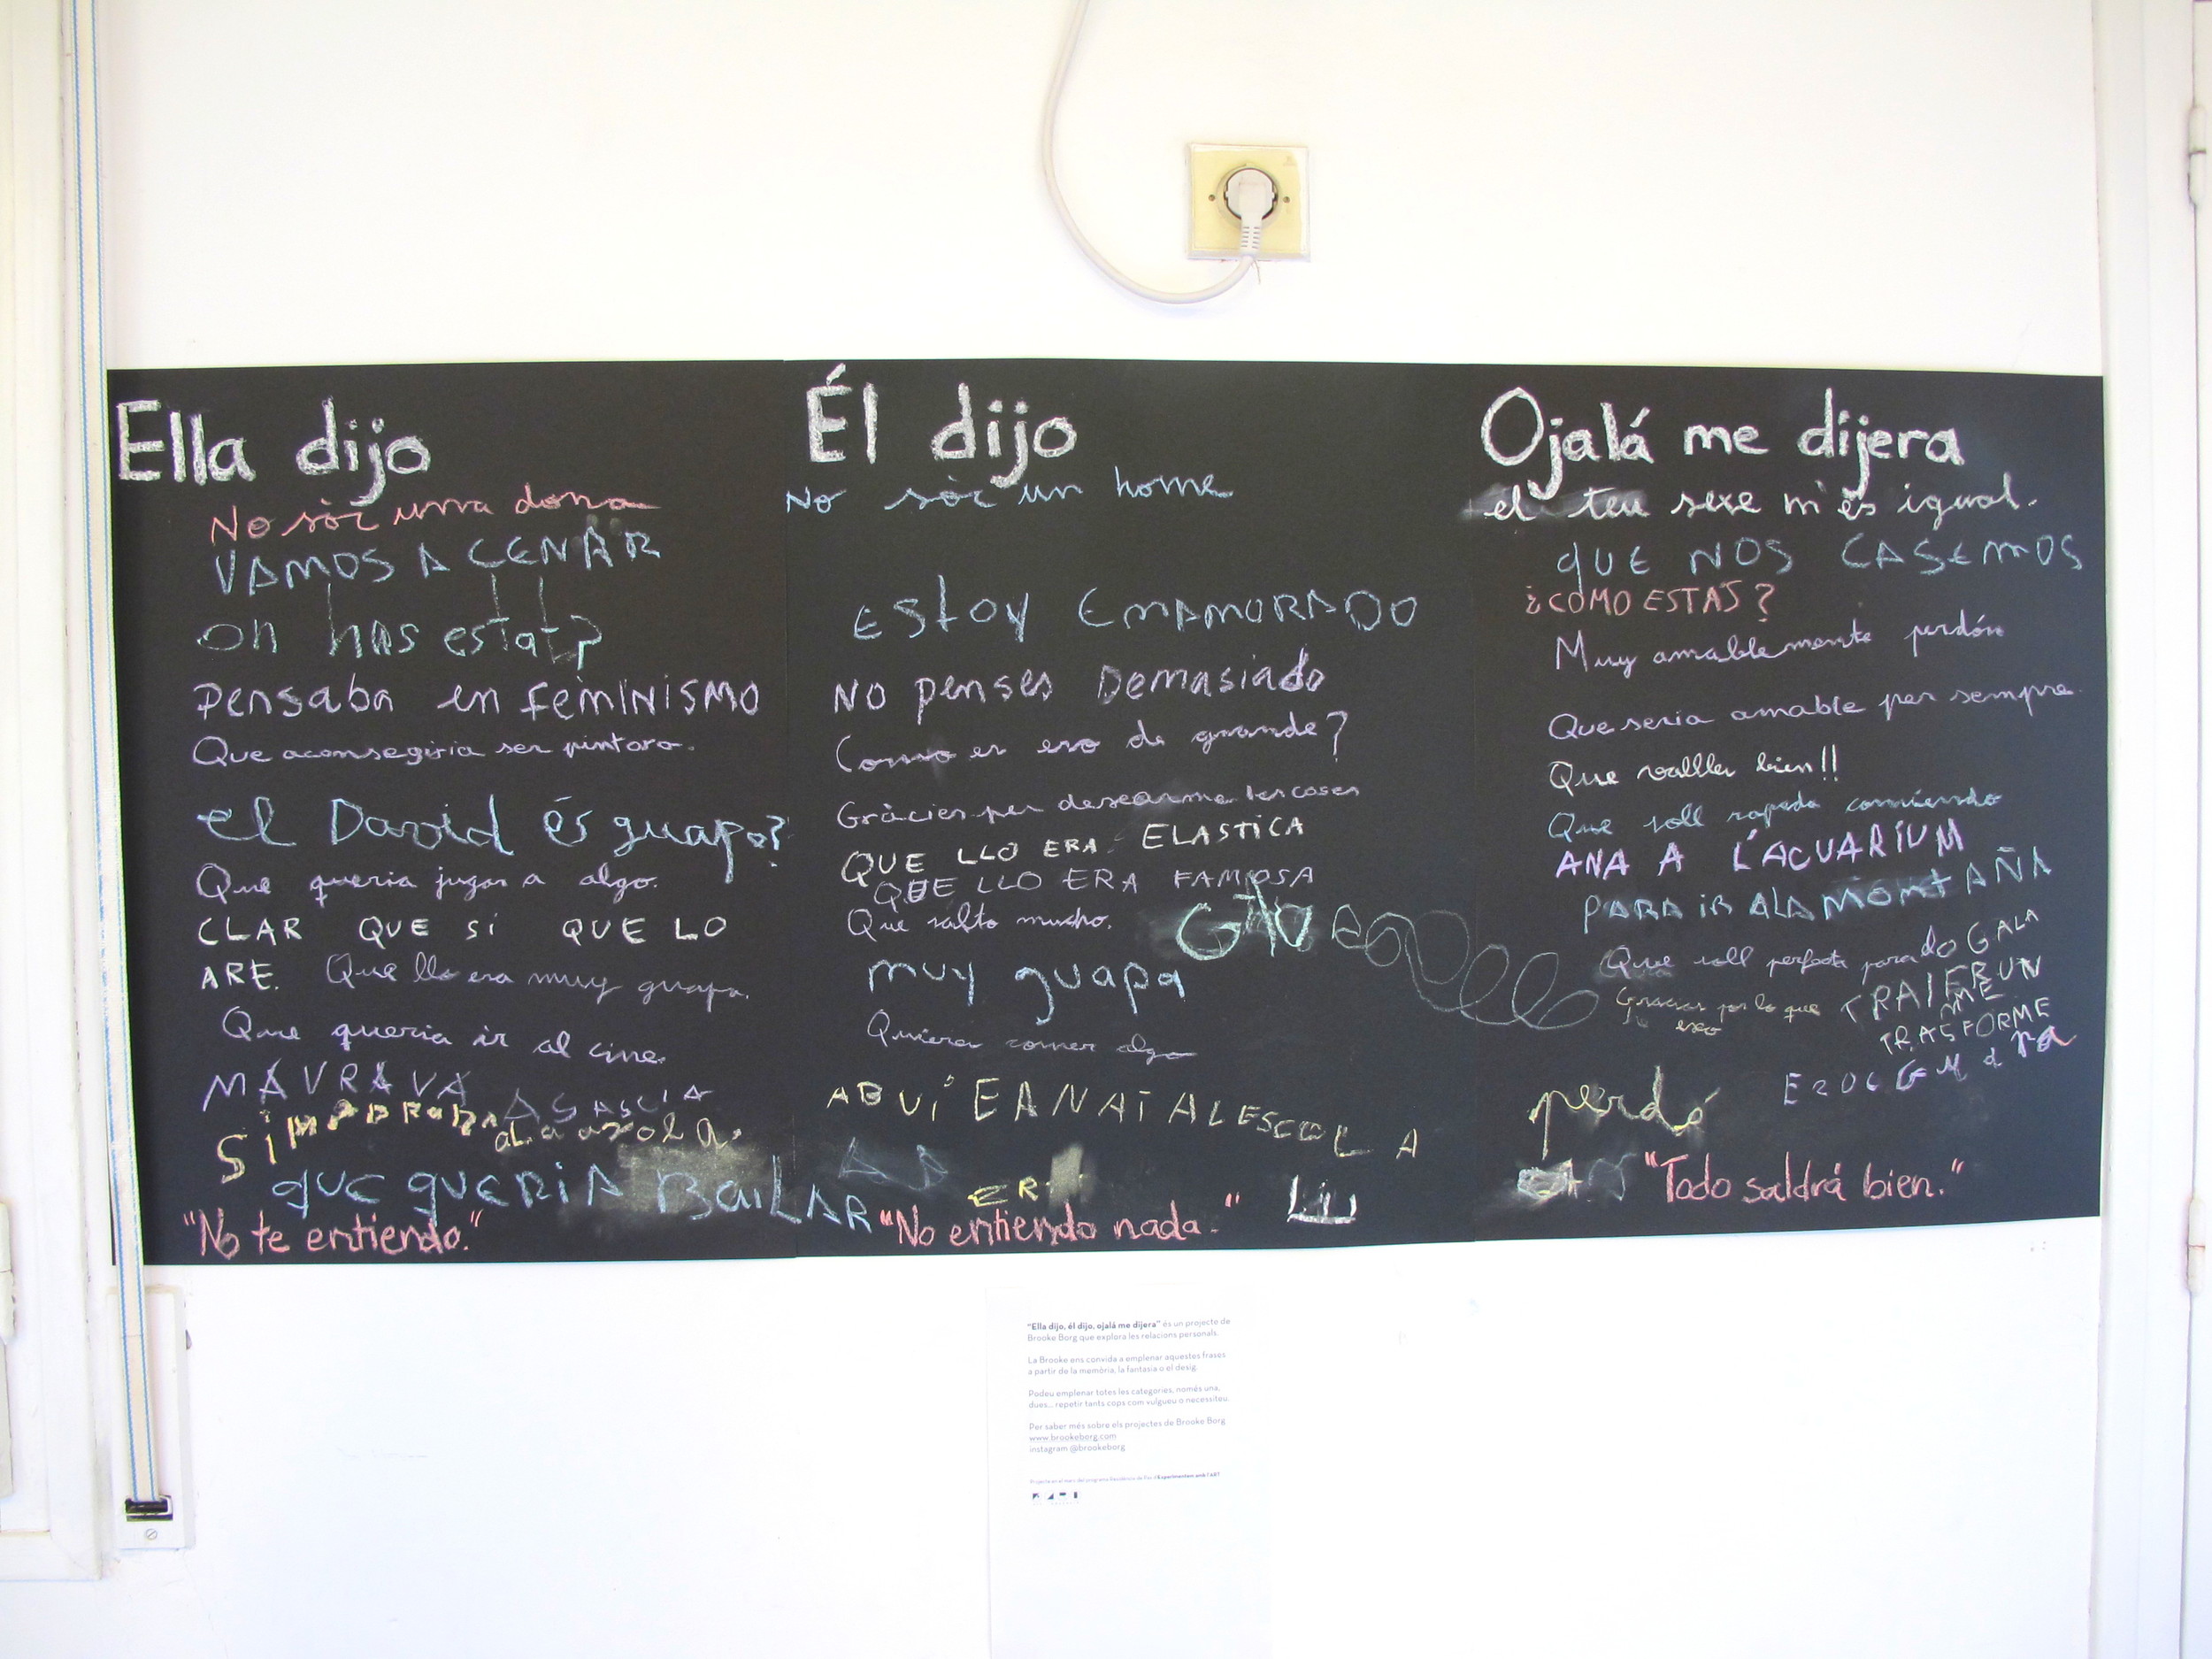 Ella dijo
No sóc una dona
VAMOS A CENAR
On has estat?
Pensaba en feminismo
Que aconsegiria ser pintora.
el David és guapo?
Que queria jugar a algo.
CLAR QUE SI QUE LO
ARE. Que llo era muy guapa.
Que queria ir al cine.
SI
QUE QUERIA BAILAR
"No te entiendo."
Él dijo
No sóc un home
Estoy ENAMORADO
NO penses Demasiado
Como es eso de grande?
Gràcies per desearme les coses
QUE LLO ERA ELASTICA
QUE LLO ERA FAMOSA
Que salto mucho.
muy guapa
Quieres comer algo
"No entiendo nada."
Ojalá me dijera
el teu sexe m'és igual.
QUE NOS CASEMOS
¿COMO ESTAS?
Muy amablemente perdón
Que seria amable per sempre
Que vallla bien!!
Que soll rapada comiendo
ANA A L'ACUARIUM
PARA IR ALA MONTAÑA
Que soll perfecta para
Gracias por lo que
eso
TRASFORME
perdó
"Todo saldrá bien."
"Ella dijo, él dijo, ojalá me dijera" és un projecte de
Brooke Borg que explora les relacions personals.
La Brooke ens convida a emplenar aquestes frases
a partir de la memòria, la fantasia o el desig.
Podeu emplenar totes les categories, només una,
dues... repetir tants cops com vulgueu o necessiteu.
Per saber més sobre els projectes de Brooke Borg
www.brookeborg.com
instagram @brookeborg